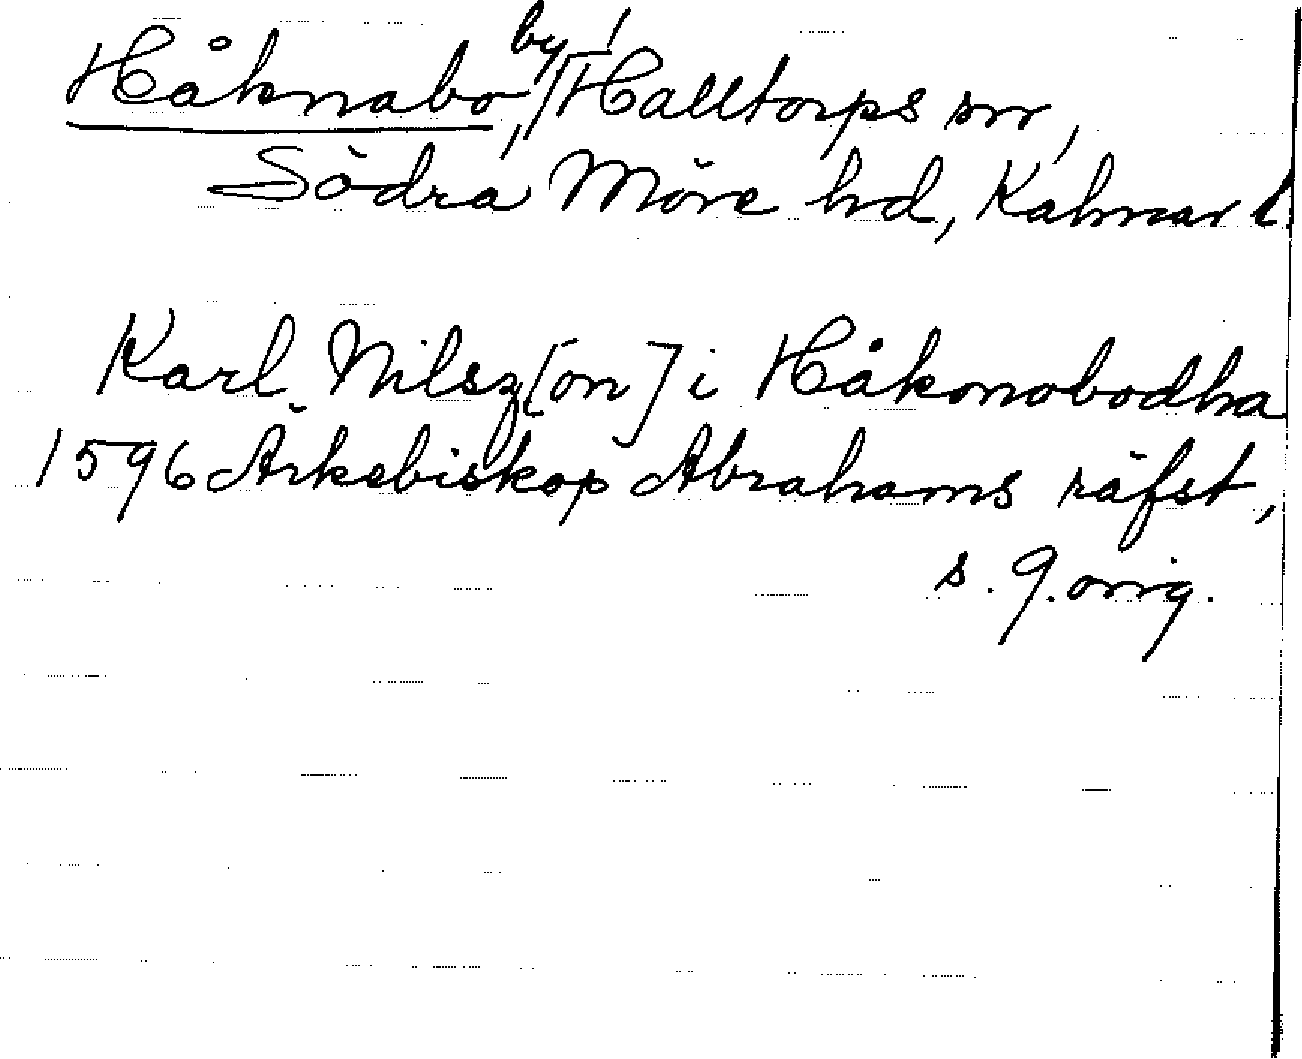 Håknabo, by, Halltorps sn,
Södra Möre hd, Kalmar l.
Karl Nilsz[on] i Håkonobodha
1596 Ärkebiskop Abrahams räfst,
s. 9. orig.